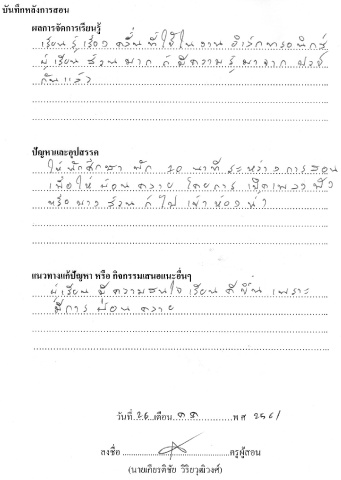 บันทึกหลังการสอน
ผลการจัดการเรียนรู้
เรียนรู้ เรื่อง คลื่น ที่ใช้ใน งาน อิเล็กทรอนิกส์
ผู้เรียน ส่วน มาก ก็ มีความรู้ มาจาก ปวช
กันแล้ว
ปัญหาและอุปสรรค
ให้นักศึกษา พัก 20 นาที ระหว่าง การสอน
เพื่อให้ ผ่อนคลาย โดยการ เปิดเพลง ฟัง
หรือ บางส่วน ก็ ไป เข้าห้องน้ำ
แนวทางแก้ปัญหา หรือ กิจกรรมเสนอแนะอื่นๆ
ผู้เรียน มีความสนใจ เรียน ดีขึ้น เพราะ
มีการ ผ่อนคลาย
วันที่ 26 เดือน ตค พ ศ 2561
ลงชื่อ ครูผู้สอน
(นายเกียรติชัย วิริยวุฒิวงศ์)